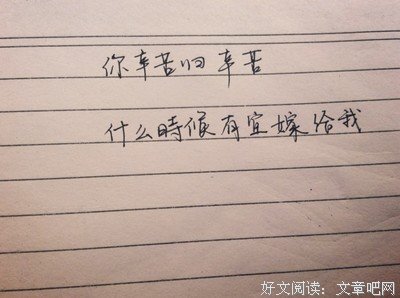 你辛苦归辛苦
什么時候有宜嫁给我
好文阅读：文章吧网